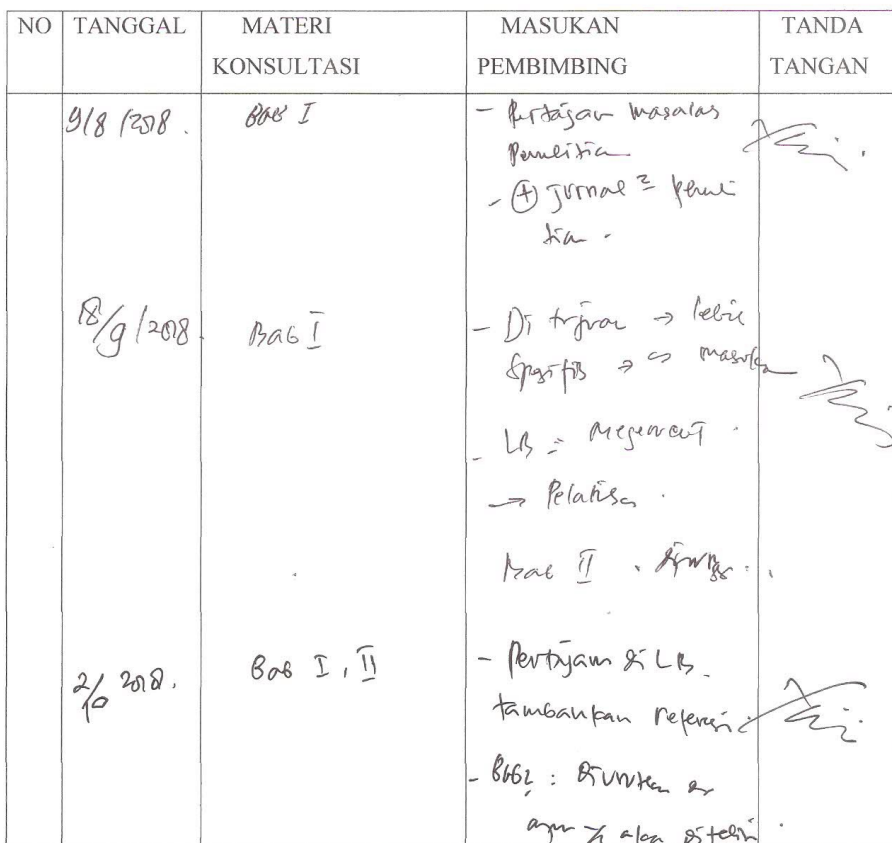 NO TANGGAL MATERI KONSULTASI MASUKAN PEMBIMBING TANDA TANGAN
9/8/2018. Bab I - Pertajam masalah
Penelitian
- + jurnal2 peneli
tian.
18/9/2018 Bab I - Di tujuan → lebih
spesifik →
- LB =
→ Pelatihan.
Bab II.
2/10 2018. Bab I, II - Pertajam di LB.
tambahkan referensi.
- Bab2: diuraikan
akan diteliti.